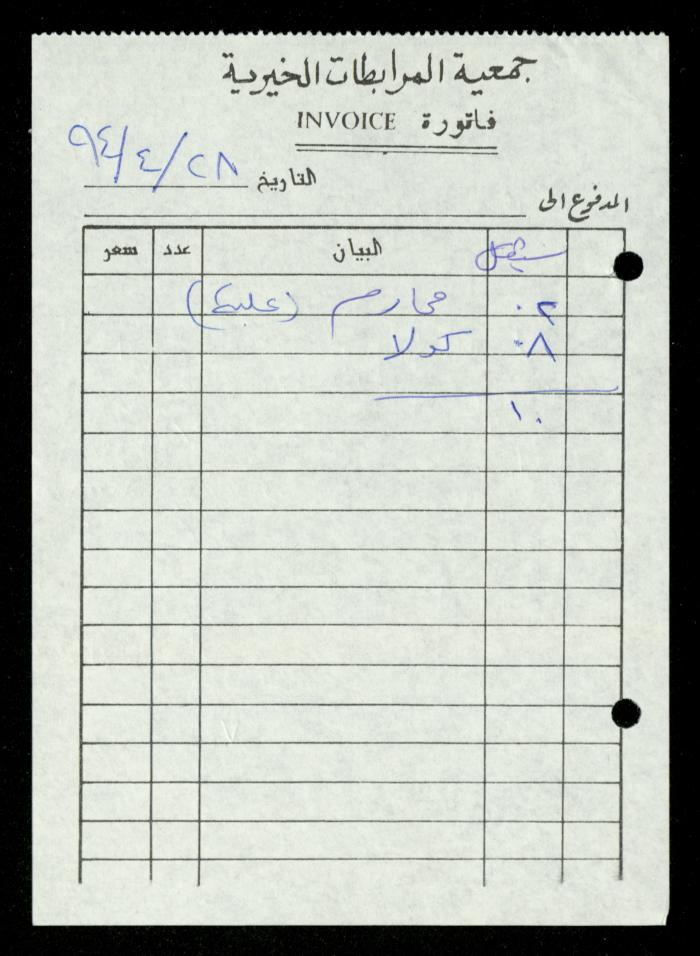 جمعية المرابطات الخيرية
فاتورة INVOICE
التاريخ ٩٤/٤/٢٨
المدفوع الى
شيقل البيان عدد سعر
.٢ محارم (علبة)
.٨ كولا
١٠